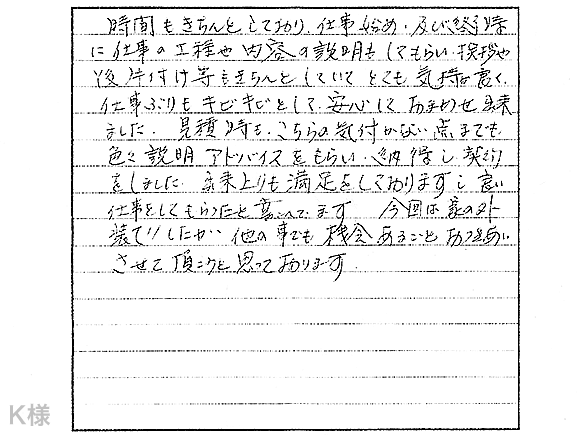 時間もきちんとしており、仕事始め、及び終了時
に仕事の工程や内容の説明もしてもらい、挨拶や
後片付け等もきちんとしていて とても気持ち良く、
仕事ぶりもキビキビとして、安心しておまかせ出来
ました。 見積り時も、こちらの気付かない点までも
色々説明 アドバイスをもらい、納得し 契約
をしました。 出来上りも満足をしておりますし 良い
仕事をしてもらったと喜んでます 今回は家の外
装でしたが 他の事でも 機会あるごと おつき合い
させて頂こうと思っております。
K様